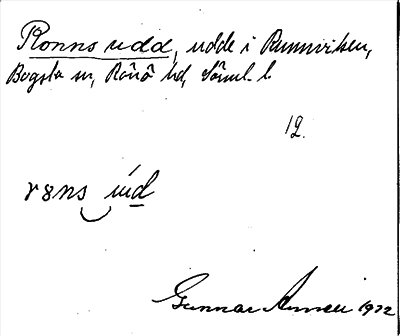 Ronns udd, udde i Runnviken,
Bogsta sn, Rönö hd, Söml. l.
12.
rɞns ud
Gunnar 1932